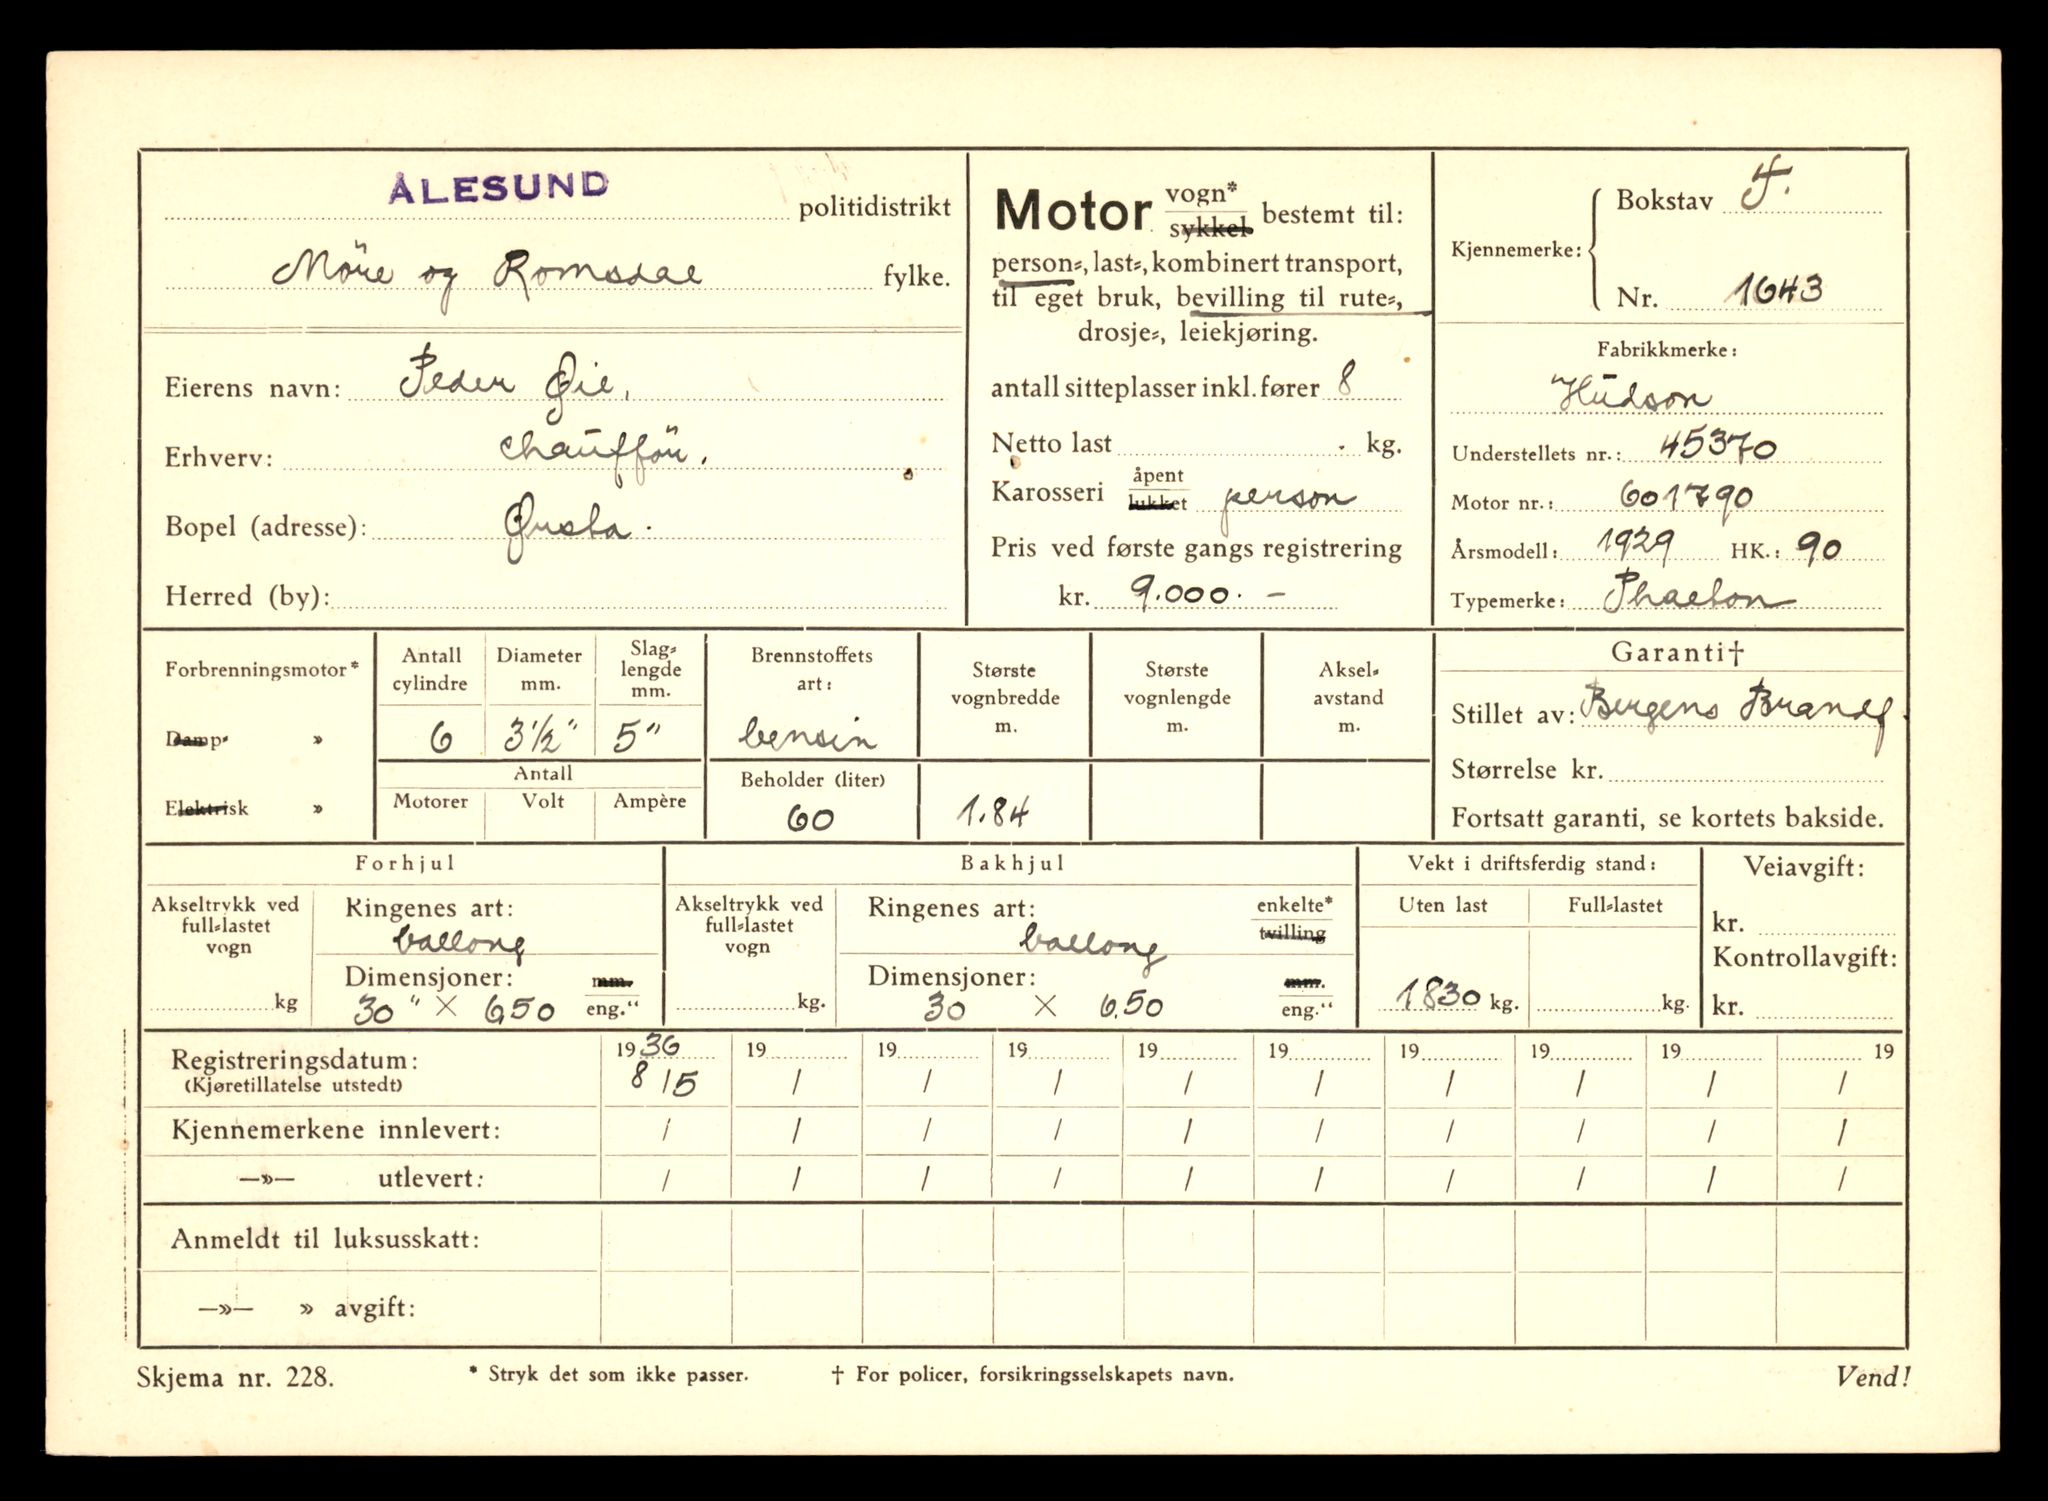 ÅLESUND politidistrikt
Möre og Romsdal fylke.
Eierens navn: Peder Øie.
Erhverv: chaufför.
Bopel (adresse): Ørsta.
Herred (by):
Motor vogn* sykkel bestemt til:
person-, last-, kombinert transport,
til eget bruk, bevilling til rute-,
drosje-, leiekjøring.
antall sitteplasser inkl. fører 8
Netto last kg.
Karosseri åpent lukket person
Pris ved første gangs registrering
kr. 9.000.-
Kjennemerke: Bokstav T.
Nr. 1643
Fabrikkmerke:
Hudson
Understellets nr.: 45370
Motor nr.: 601790
Årsmodell: 1929 HK.: 90
Typemerke: Phaeton
Forbrenningsmotor*
Damp- »
Elektrisk »
Antall cylindre
Diameter mm.
Slag-
lengde
mm.
6 3½" 5"
Antall
Motorer Volt Ampère
Brennstoffets
art:
bensin
Beholder (liter)
60
Største
vognbredde
m.
1.84
Største
vognlengde
m.
Aksel-
avstand
m.
Garanti†
Stillet av: Bergens Brandf.
Størrelse kr.
Fortsatt garanti, se kortets bakside.
Forhjul
Akseltrykk ved
full-lastet
vogn
kg
Ringenes art:
ballong
Dimensjoner: mm.
30" × 6,50 eng."
Bakhjul
Akseltrykk ved
full-lastet
vogn
kg.
Ringenes art: enkelte*
ballong tvilling
Dimensjoner: mm.
30 × 6,50 eng."
Vekt i driftsferdig stand:
Uten last Full-lastet
1830 kg. kg.
Veiavgift:
kr.
Kontrollavgift:
kr.
Registreringsdatum: 1936 19 19 19 19 19 19 19 19 19
(Kjøretillatelse utstedt) 8/5 / / / / / / / / /
Kjennemerkene innlevert: / / / / / / / / / /
—»— utlevert: / / / / / / / / / /
Anmeldt til luksusskatt:
—»— » avgift:
Skjema nr. 228. * Stryk det som ikke passer. † For policer, forsikringsselskapets navn. Vend!